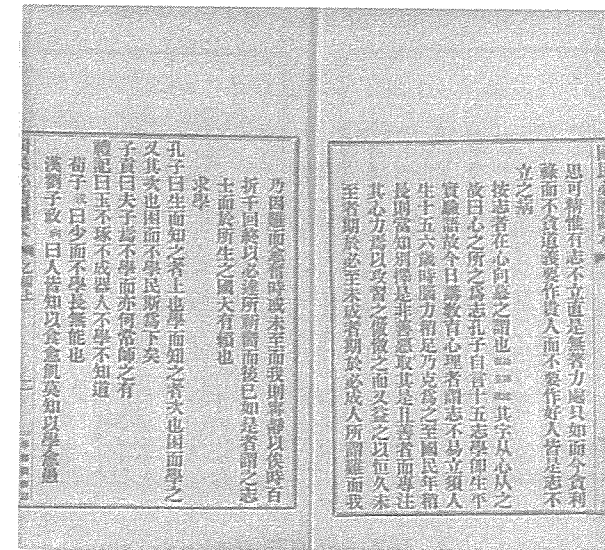 思可精惟有志不立直是無著力處只如而今貪利
祿而不貪道義要作貴人而不要作好人皆是志不
立之病
按志者在心向慕之謂也其字从心从之
故曰心之所之為志孔子自言十五志學卽生平
實驗語故今日講教育心理者謂志不易立須人
生十五六歲時腦力稍足乃克為之至國民年稍
長則當知別擇是非善惡取其是且善者而專注
其心力焉以攻習之倣傚之而又益之以恒久未
至者期於必至未成者期於必成人所謂難而我
乃因難而愈奮時或未至而我則寧靜以俟時百
折千回終以必達所祈嚮而後已如是者謂之志
士而於所生之國大有賴也
求學
孔子曰生而知之者上也學而知之者次也困而學之
又其次也困而不學民斯為下矣
子貢曰夫子焉不學而亦何常師之有
禮記曰玉不琢不成器人不學不知道
荀子曰少而不學長無能也
漢劉子政曰人皆知以食愈飢莫知以學愈愚